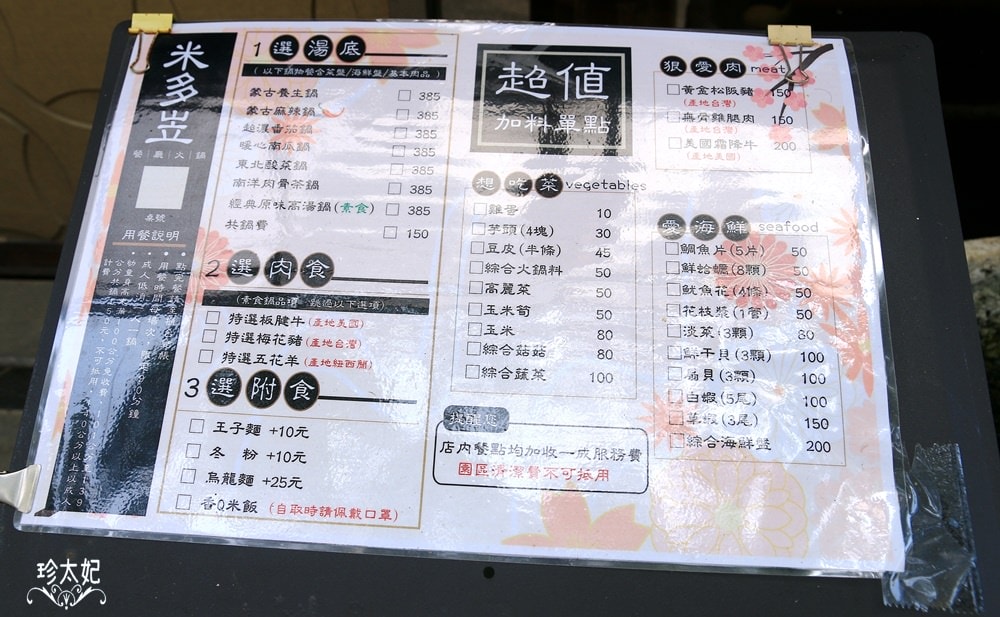 米多豈
餐｜廳｜火｜鍋
桌號
用餐說明
1 選湯底
(以下鍋物皆含菜盤/海鮮盤/基本肉品)
蒙古養生鍋 385
蒙古麻辣鍋 385
超濃番茄鍋 385
暖心南瓜鍋 385
東北酸菜鍋 385
南洋肉骨茶鍋 385
經典原味高湯鍋(素食) 385
共鍋費 150
2 選肉食
(素食鍋品項 跳過以下選項)
特選板腱牛(產地美國)
特選梅花豬(產地台灣)
特選五花羊(產地紐西蘭)
3 選附食
王子麵 +10元
冬 粉 +10元
烏龍麵 +25元
香Q米飯 (自取時請佩戴口罩)
超值
加料單點
想吃菜 vegetables
雞蛋 10
芋頭(4塊) 30
豆皮(半條) 45
綜合火鍋料 50
高麗菜 50
玉米筍 50
玉米 80
綜合菇菇 80
綜合蔬菜 100
提醒您
店內餐點均加收一成服務費
園區清潔費不可抵用
狠愛肉 meat
黃金松阪豬 150
(產地台灣)
無骨雞腿肉 150
(產地台灣)
美國霜降牛 200
(產地美國)
愛海鮮 seafood
鯛魚片(5片) 50
鮮蛤蠣(8顆) 50
魷魚花(4條) 50
花枝漿(1管) 50
淡菜(3顆) 80
鮮干貝(3顆) 100
扇貝(3顆) 100
白蝦(5尾) 100
草蝦(3尾) 150
綜合海鮮盤 200
珍太妃